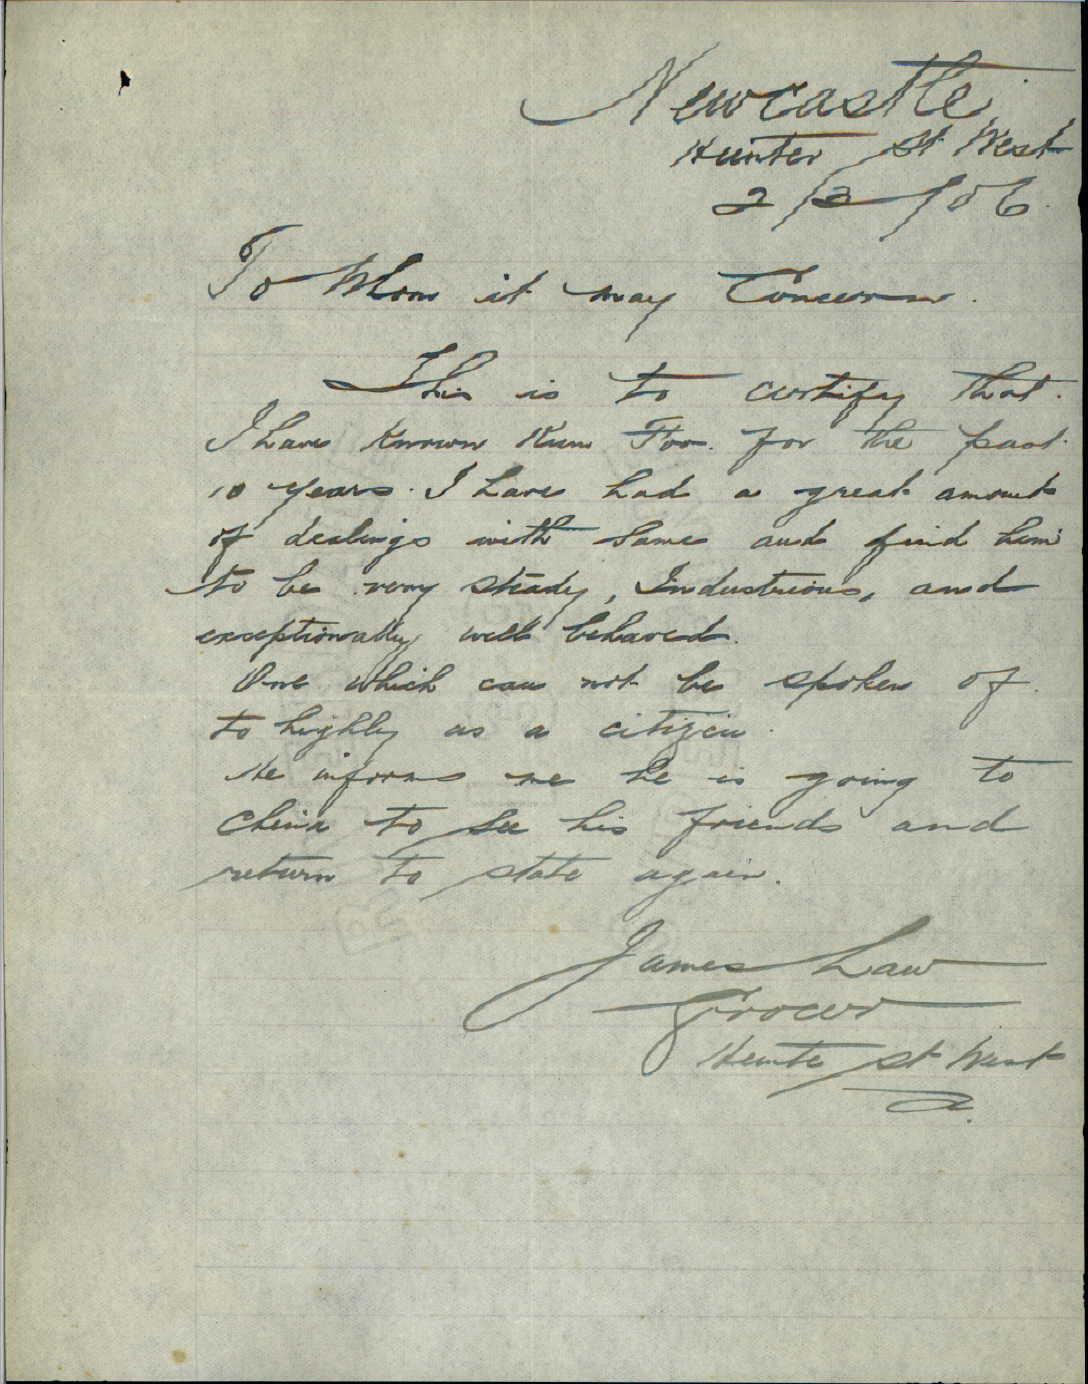 Newcastle
Hunter St West
2/2/06
To Whom it may Concern.
This is to certify that.
I have Known Kum Foo. for the past
10 years. I have had a great amount
of dealings with same and find him
to be very steady, Industrious, and
exceptionally well behaved.
One which can not be spoken of.
to highly as a citizen.
He informs me he is going to
China to see his friends and
return to state again.
James Law
Grocer
Hunter St West